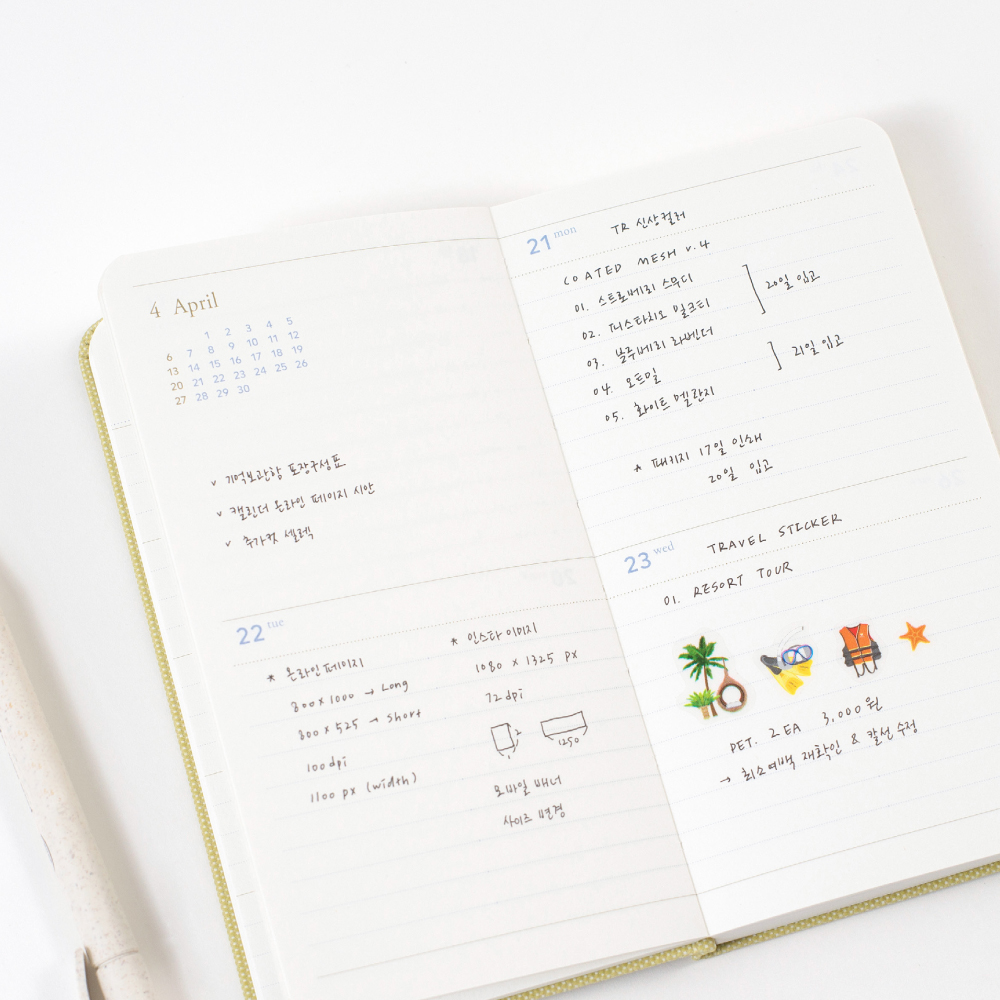 4 April
1 2 3 4 5
6 7 8 9 10 11 12
13 14 15 16 17 18 19
20 21 22 23 24 25 26
27 28 29 30
v 기억보관함 포장구성표
v 캘린더 온라인 페이지 시안
v 추가컷 셀렉
22 tue
* 온라인 페이지
800 x 1000 → Long
800 x 525 → short
100 dpi
1100 px (width)
* 인스타 이미지
1080 x 1325 px
72 dpi
2
1
1250
모바일 배너
사이즈 변경
21 mon
TR 신상컬러
COATED MESH v.4
01. 스트로베리 스무디
02. 피스타치오 밀크티
20일 입고
03. 블루베리 라벤더
04. 오트밀
21일 입고
05. 화이트 멜란지
* 패키지 17일 인쇄
20일 입고
23 wed
TRAVEL STICKER
01. RESORT TOUR
PET. 2EA 3,000원
→ 최소여백 재확인 & 칼선 수정